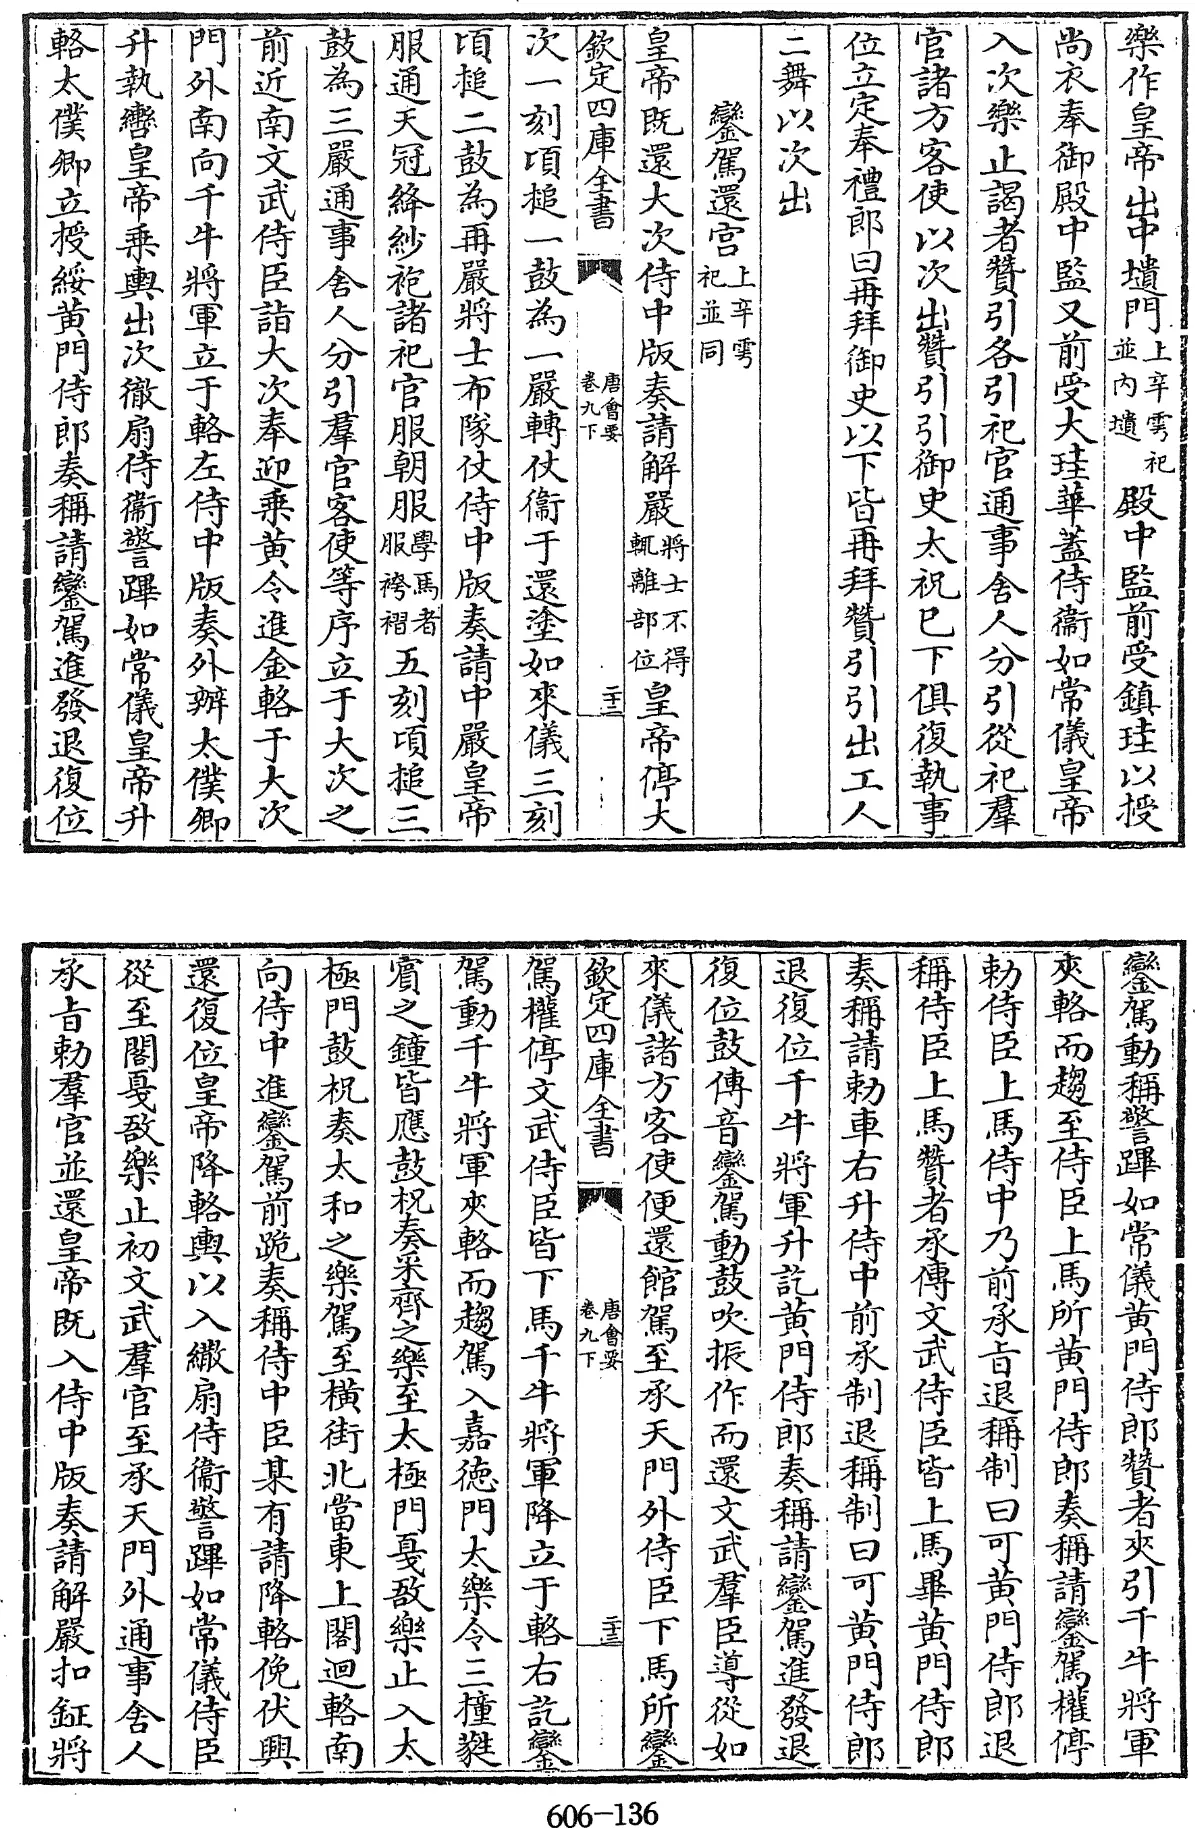 樂作皇帝出中壝門上辛雩祀並內壝殿中監前受鎮珪以授
尚衣奉御殿中監又前受大珪華蓋侍衞如常儀皇帝
入次樂止謁者贊引各引祀官通事舍人分引從祀羣
官諸方客使以次出贊引引御史太祝已下俱復執事
位立定奉禮郎曰再拜御史以下皆再拜贊引引出工人
二舞以次出
鑾駕還宫上辛雩祀並同
皇帝既還大次侍中版奏請解嚴將士不得輒離部位皇帝停大
欽定四庫全書
唐會要卷九下
二十二
次一刻頃搥一鼓為一嚴轉仗衞于還塗如來儀三刻
頃搥二鼓為再嚴將士布隊仗侍中版奏請中嚴皇帝
服通天冠絳紗袍諸祀官服朝服學馬者服袴褶五刻頃搥三
鼓為三嚴通事舍人分引羣官客使等序立于大次之
前近南文武侍臣詣大次奉迎乘黄令進金輅于大次
門外南向千牛將軍立于輅左侍中版奏外辦太僕卿
升執轡皇帝乘輿出次徹扇侍衞警蹕如常儀皇帝升
輅太僕卿立授綏黄門侍郎奏稱請鑾駕進發退復位
鑾駕動稱警蹕如常儀黄門侍郎贊者夾引千牛將軍
夾輅而趨至侍臣上馬所黄門侍郎奏稱請鑾駕權停
勅侍臣上馬侍中乃前承旨退稱制曰可黄門侍郎退
稱侍臣上馬贊者承傳文武侍臣皆上馬畢黄門侍郎
奏稱請勅車右升侍中前承制退稱制曰可黄門侍郎
退復位千牛將軍升訖黄門侍郎奏稱請鑾駕進發退
復位鼓傳音鑾駕動鼓吹振作而還文武羣臣導從如
來儀諸方客使便還館駕至承天門外侍臣下馬所鑾
欽定四庫全書
唐會要卷九下
二十三
駕權停文武侍臣皆下馬千牛將軍降立于輅右訖鑾
駕動千牛將軍夾輅而趨駕入嘉德門太樂令三撞蕤
賓之鐘皆應鼓柷奏采齊之樂至太極門戛敔樂止入太
極門鼓柷奏太和之樂駕至橫街北當東上閤迴輅南
向侍中進鑾駕前跪奏稱侍中臣某有請降輅俛伏興
還復位皇帝降輅輿以入繖扇侍衞警蹕如常儀侍臣
從至閤戛敔樂止初文武羣官至承天門外通事舍人
承旨勅羣官並還皇帝既入侍中版奏請解嚴扣鉦將
606-136